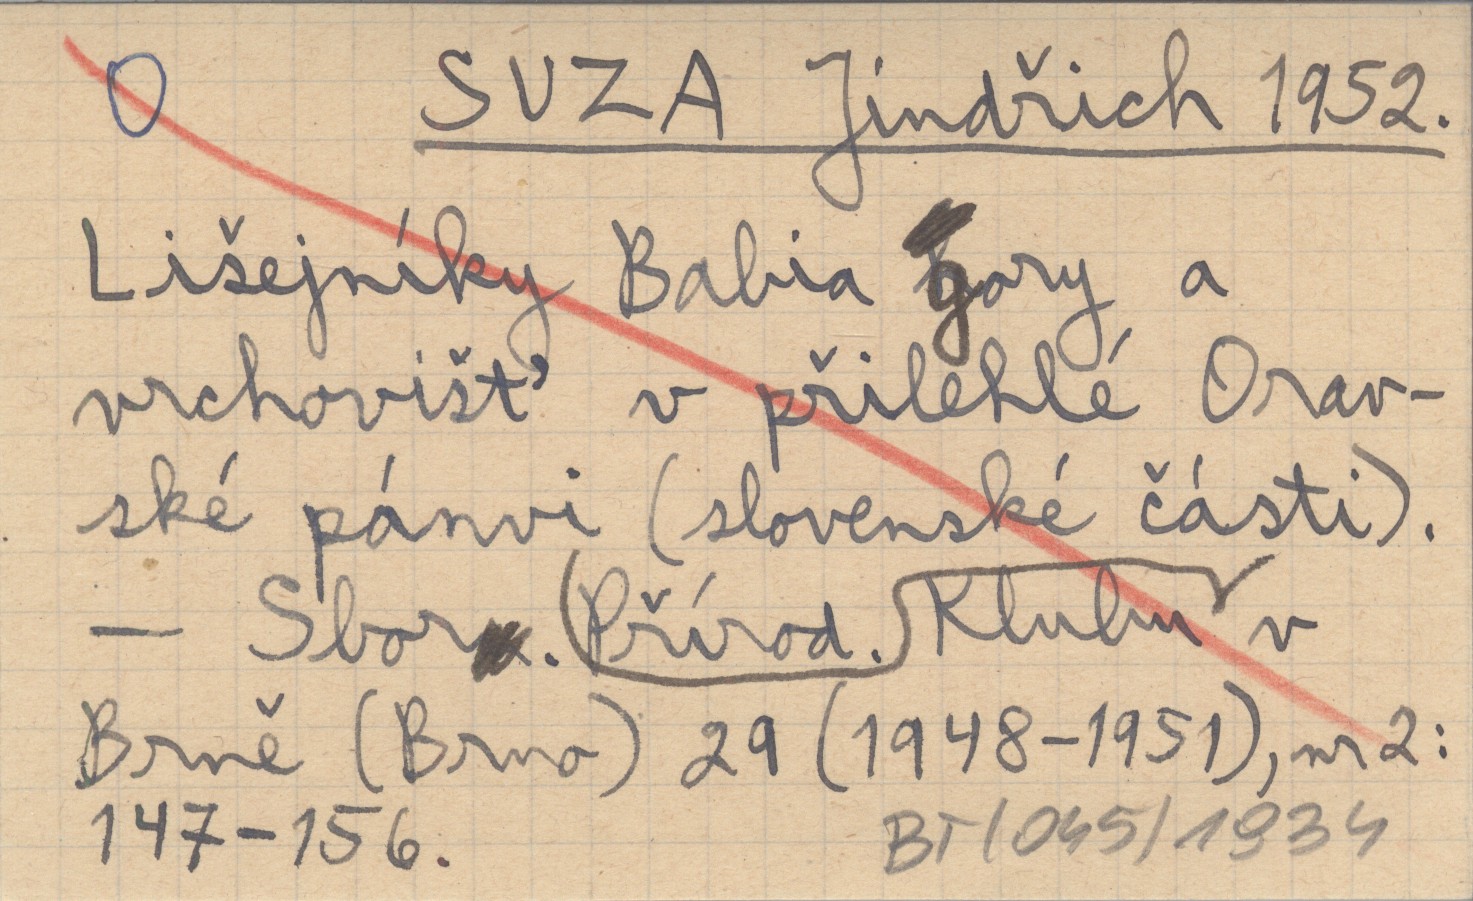 O SUZA Jindřich 1952.
Lišejníky Babia gory a
vrchovišť v přilehlé Orav-
ské pánvi (slovenské části).
— Sbor. Přírod. Klubu v
Brně (Brno) 29 (1948-1951), nr 2:
147-156. BT/045/1934